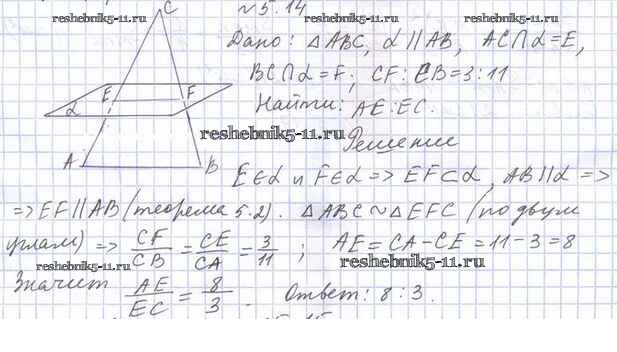 №5.14
reshebnik5-11.ru reshebnik5-11.ru
Дано: △ABC, α||AB, AC∩α=E,
BC∩α=F; CF:CB=3:11
Найти: AE:EC.
reshebnik5-11.ru
Решение
C
E F
α
A B
E∈α и F∈α => EF⊂α, AB||α =>
=> EF||AB (теорема 5.2). △ABC~△EFC (по двум
углам) => CF/CB = CE/CA = 3/11 ; AE = CA-CE = 11-3 = 8
reshebnik5-11.ru reshebnik5-11.ru
Значит AE/EC = 8/3. Ответ: 8:3.